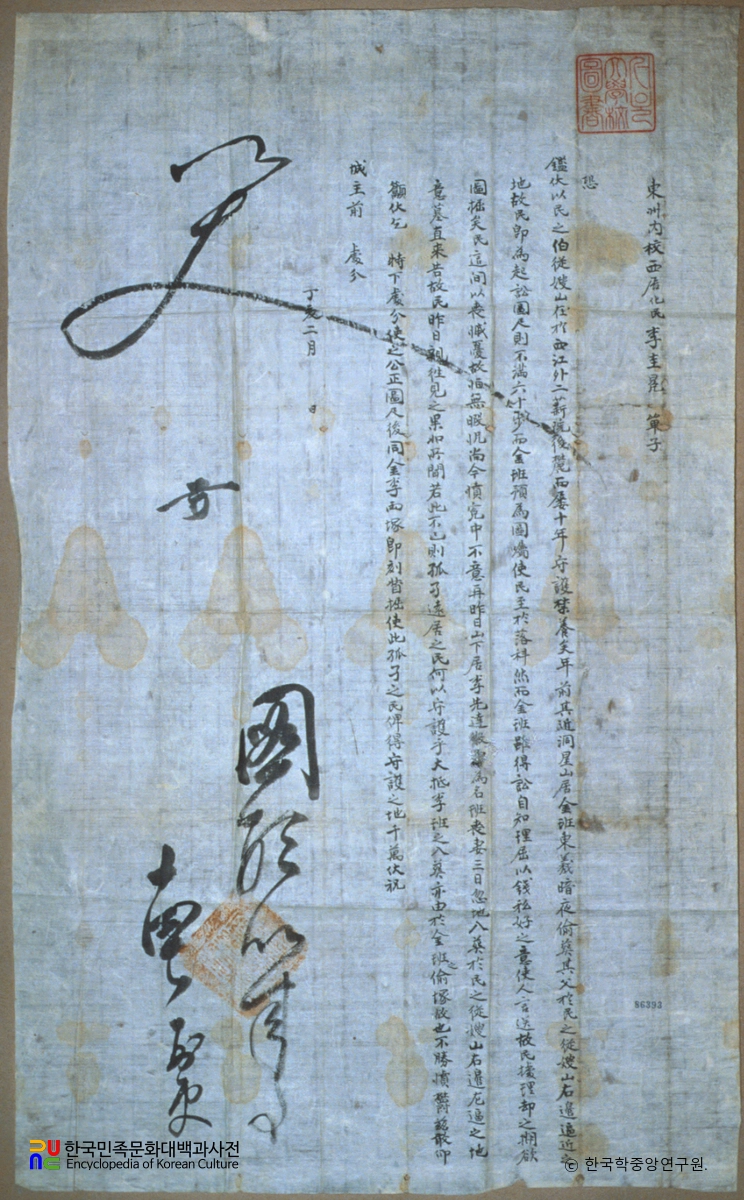 東洲內校西居化民李圭冕 單子
恐
鑑伏以民之伯從嫂山在於西江外二薪院後麓而屢十年守護禁養矣年前其近洞星山居金班東義暗夜偷葬其父於民之從嫂山右邊逼近之
地故民卽爲起訟圖尺則不滿六十步而金班預爲圖囑使民至於落科然而金班雖得訟自知理屈以錢私好之意使人言送故民據理却之期欲
圖掘矣民這間以喪慽憂故悟無暇況尚今憤寃中不意再昨日山下居李先達 爲名班喪妻三日忽地入葬於民之從嫂山右邊尤逼之地
意墓直來告故民昨日親往見之果如所聞若此不已則孤孑遠居之民何以守護乎大抵李班之入葬亦由於金班偷塚故也不勝憤鬱敢仰
籲伏乞 特下處分使之公正圖尺後同金李兩塚卽刻督掘使此孤孑之民俾得守護之地千萬伏祝
城主前 處分
丁亥二月 日
圖形以來
十
86393
한국민족문화대백과사전
Encyclopedia of Korean Culture
© 한국학중앙연구원.